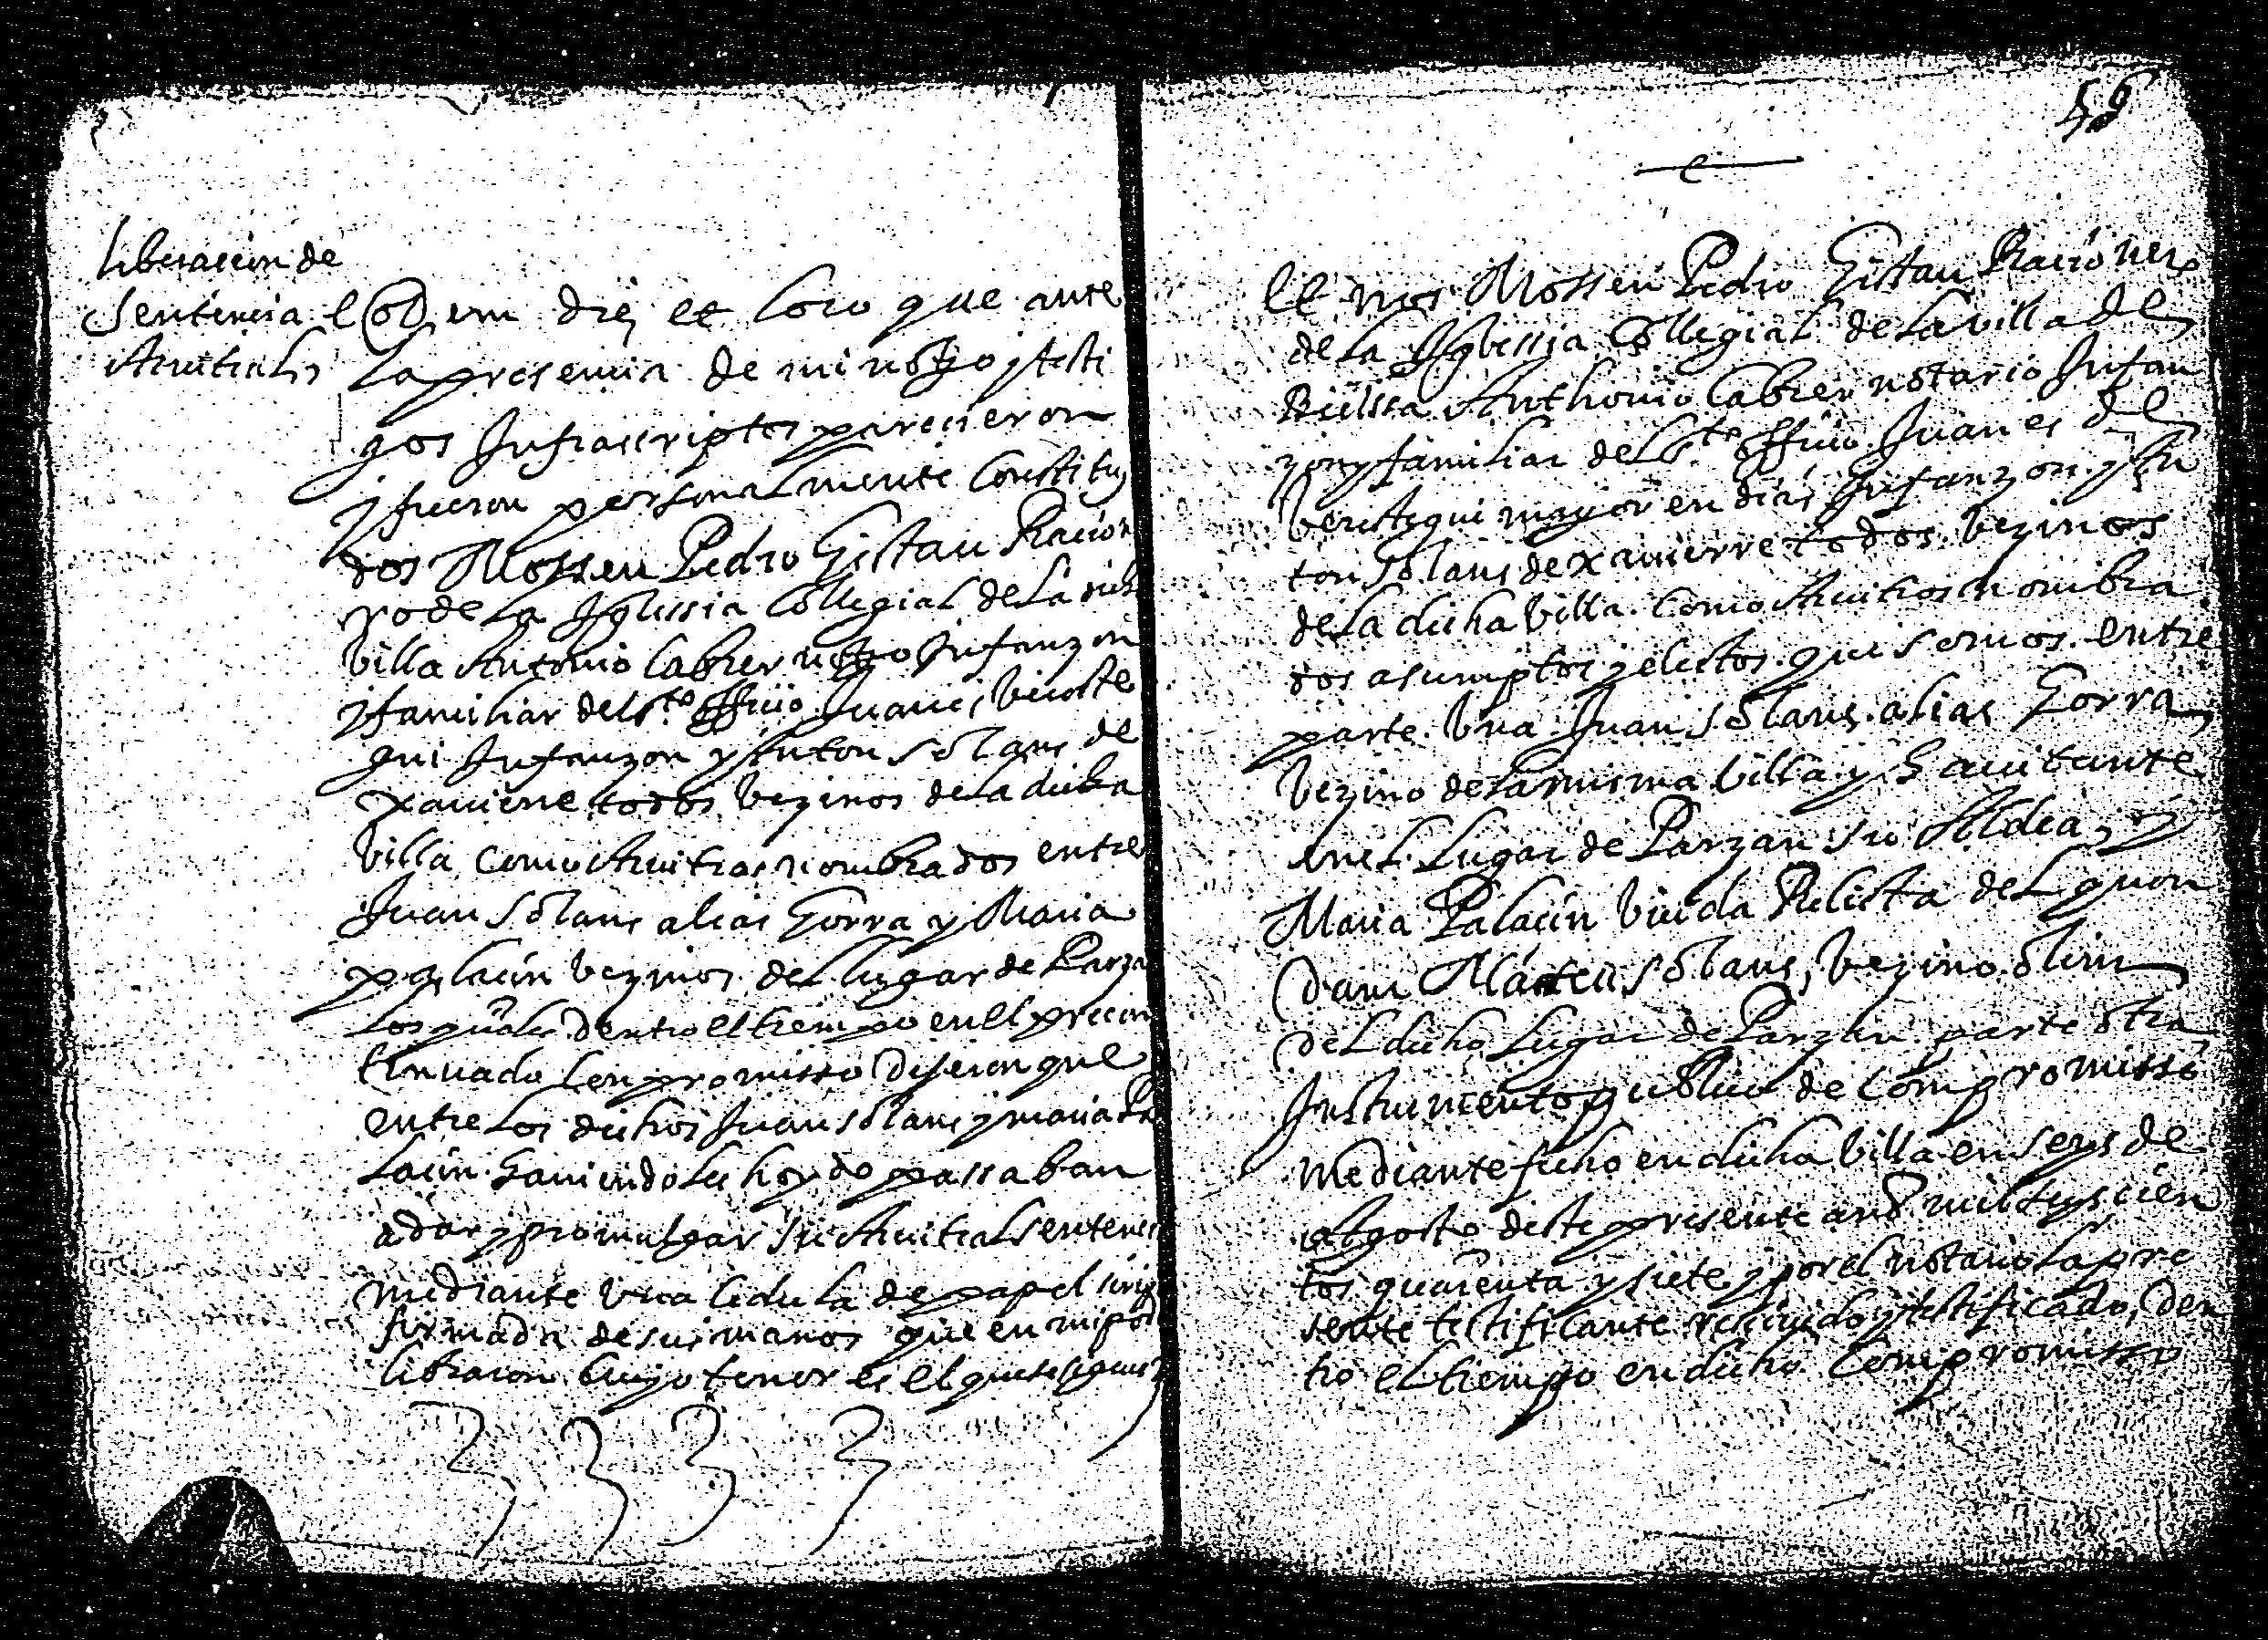 Liberacion de
Sentencia
Arbitral
Eodem die et loco que ante
la presencia de mi notº y testi
gos Infrascriptos parecieron
y fueron personalmente constituy
dos Mossen Pedro Gistau Racion
ro de la Iglessia Collegial de la dicha
Villa Antonio Cabrer notº Infanzon
y familiar del Sto. Officio Juanes Beroste
gui Infanzon y Anton Solans de
Xavierre todos vezinos de la dicha
Villa como Arvitros nombrados entre
Juan Solans alias Gorra y Maria
palacin vezinos del lugar de Parzan
los quales dentro el tiempo en el precon
tinuado Compromisso dixeron que
entre los dichos Juan Solans y maria Pa
lacin haviendoles hoydo passaban
a dar y promulgar su Arvitral sentencia
mediante una cedula de papel
firmada de sus manos que en mi poder
libraron cuyo tenor es el que se sigue
56
Et nos Mossen Pedro Gistau Racionero
de la Iglessia Collegial de la villa de
Bielssa Anthonio Cabrer notario Infan
zon y familiar del Sto. Officio Juanes de
Berostegui mayor en dias Infanzon y An
ton Solans de Xavierre todos vezinos
de la dicha Villa como Arvitros nombra
dos asumptos y electos que somos entre
parte una Juan Solans alias Gorra
vezino de la misma Villa y havitante
en el Lugar de Parzan su Aldea y
Maria Palacin viuda Relicta del quon
dam Matheu Solans, vezino olim
del dicho Lugar de Parzan parte otra
Instrumento publico de Compromisso
mediante fecho en dicha Villa en seys de
Agosto deste presente año mil seyscien
tos quarenta y siete y por el notario la pre
sente testificante recivido y testificado, den
tro el tiempo en dicho Compromisso